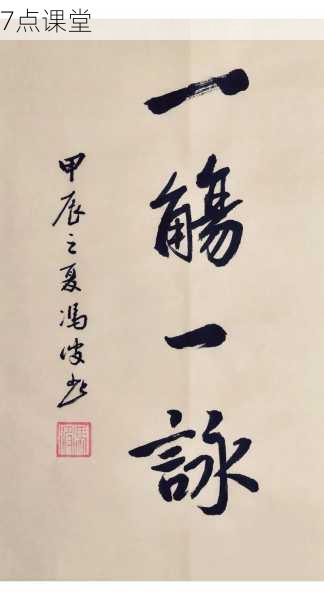 7点课堂
一觴一詠
甲辰之夏冯波书